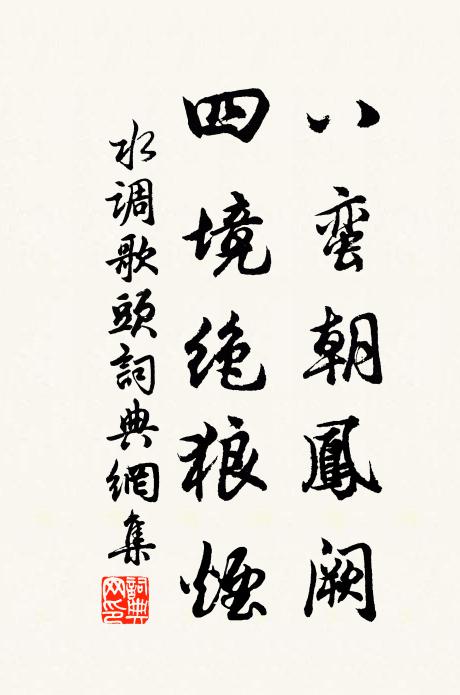 八蛮朝鳳闕
四境绝狼煙
水调歌頭詞典網集
詞典
网印